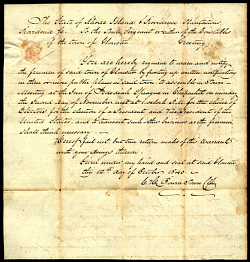 The State of Rhode Island & Providence Plantations
Providence Sc. To the Town Sergeant or either of the Constables
of the town of Gloucester Greeting
You are hereby required to warn and notify
the freemen of said town of Gloucester by posting up written notifications
in three or more public places in said town to assemble in Town
Meeting at the Inn of Sprague in Chepachet on monday
the Second day of November next at 1 o'clock P.M. for the choice of
Electors for the election of a President and Vice President of the
United States, and to transact such other business as the freemen
shall think necessary
Hereof fail not, but true return make of this Warrant
with your doings thereon
Given under my hand and seal at said Gloucester
this 12th day of October 1840.
Town Clk